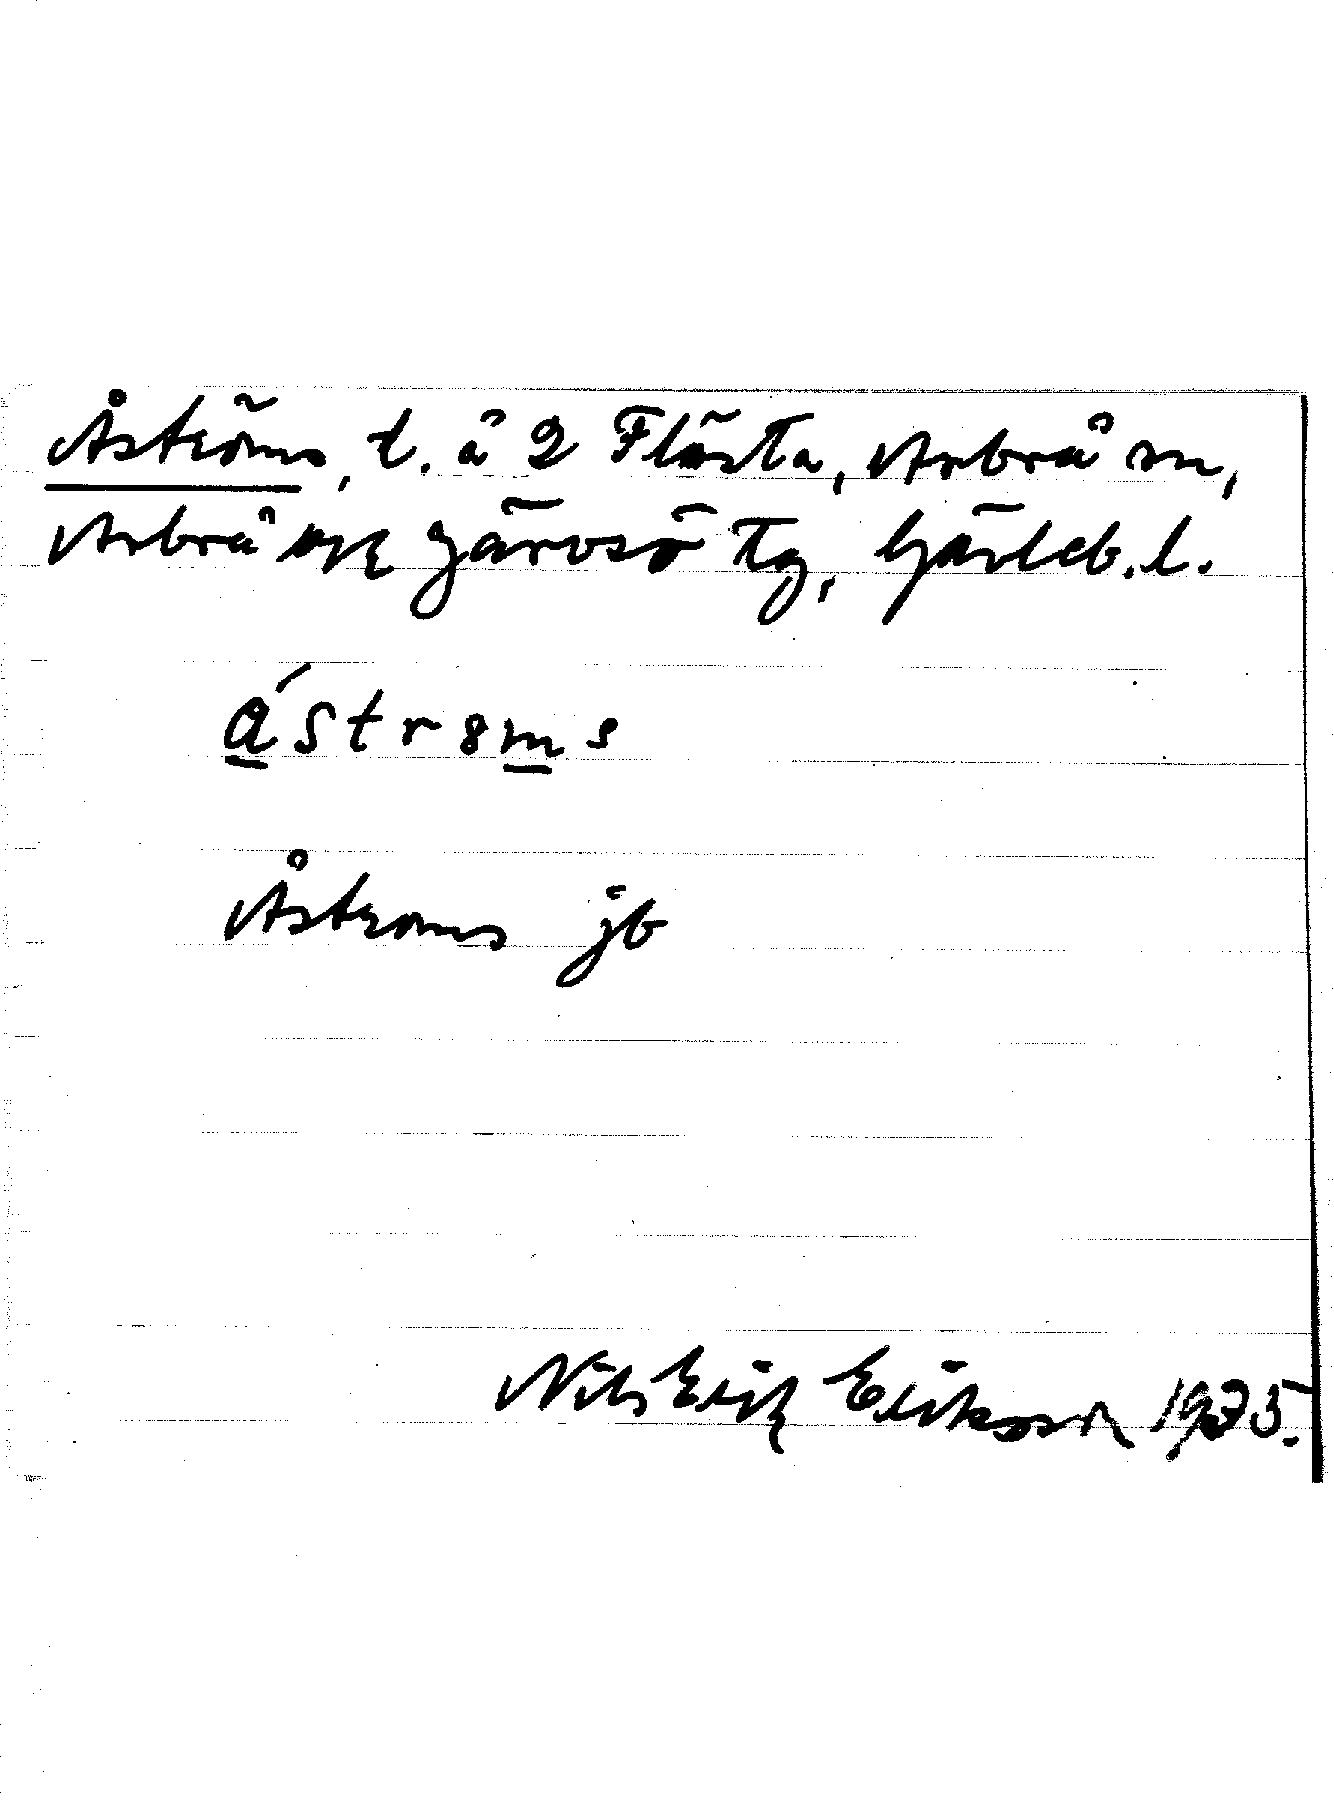 Åströms, t. å 2 Flästa, Arbrå sn,
Arbrå o Järvsö tg, Gävleb. l.
ástr8ms
Åstroms jb
Nils Erik Eriksson 1975.